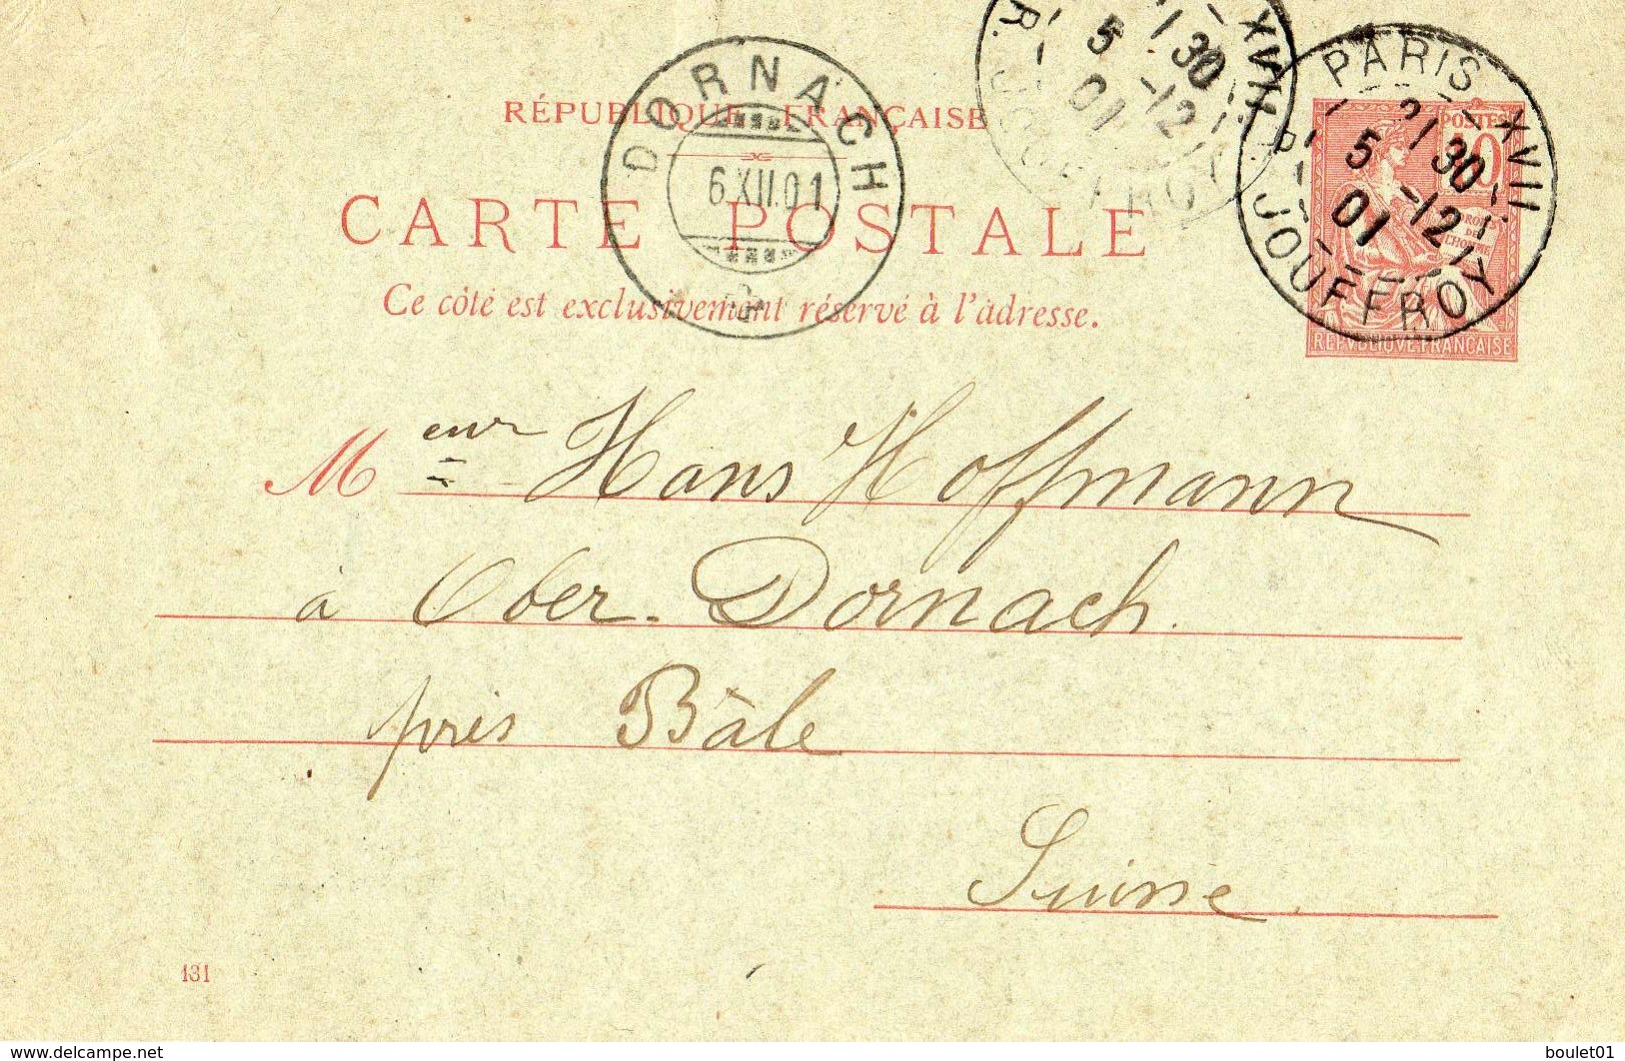 RÉPUBLIQUE FRANÇAISE
CARTE POSTALE
Ce côté est exclusivement réservé à l'adresse.
DORNACH
6.XII.01
XVII
R. JOUFFROY
30
5 -12
01
PARIS XVII
R. JOUFFROY
30
5 -12
01
POSTES
10
DROITS
DE
L'HOMME
REPVBLIQVE FRANÇAISE
Meur Hans Hoffmann
à Ober-Dornach.
près Bâle
Suisse
131
www.delcampe.net
boulet01